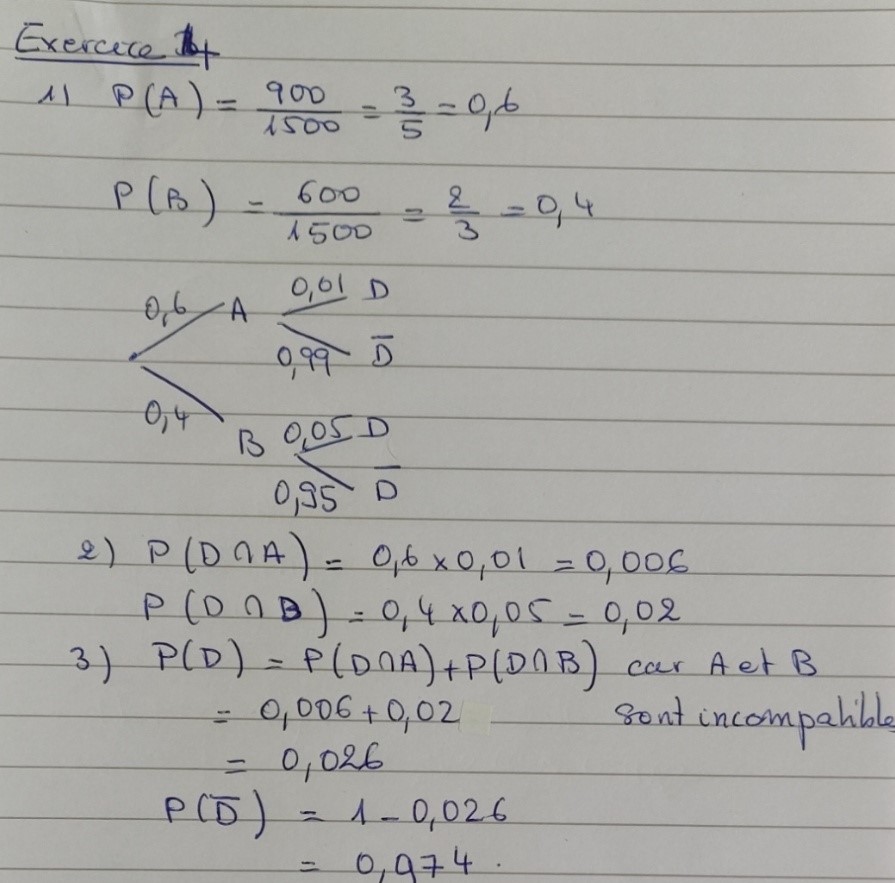 Exercice 4
1) P(A) = 900/1500 = 3/5 = 0,6
P(B) = 600/1500 = 2/3 = 0,4
0,6 A 0,01 D
0,99 D̅
0,4 B 0,05 D
0,95 D̅
2) P(D∩A) = 0,6 × 0,01 = 0,006
P(D∩B) = 0,4 × 0,05 = 0,02
3) P(D) = P(D∩A) + P(D∩B) car A et B
= 0,006 + 0,02 sont incompatibles
= 0,026
P(D̅) = 1 - 0,026
= 0,974.